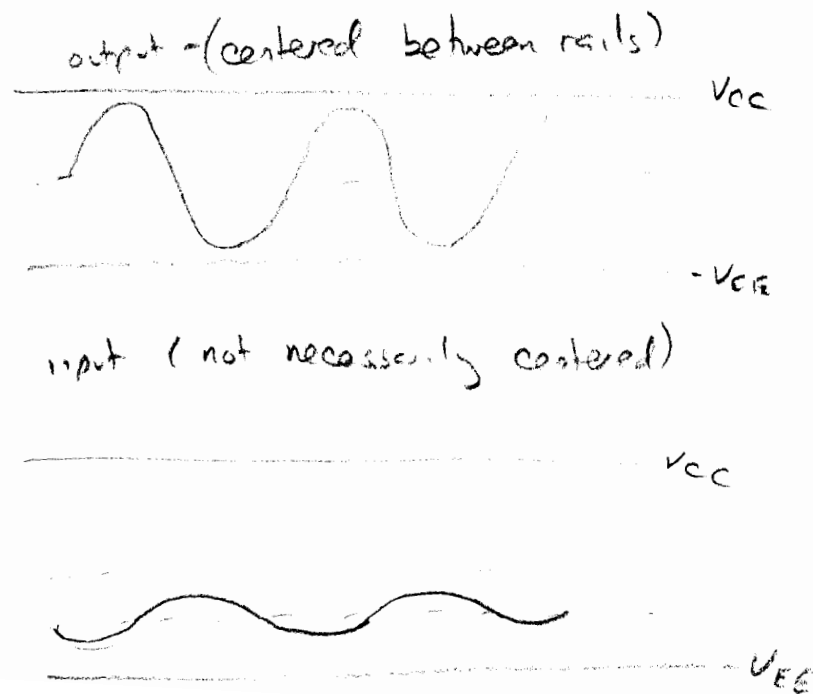 output - (centered between rails)
VCC
input (not necessarily centered)
VCC
VEE